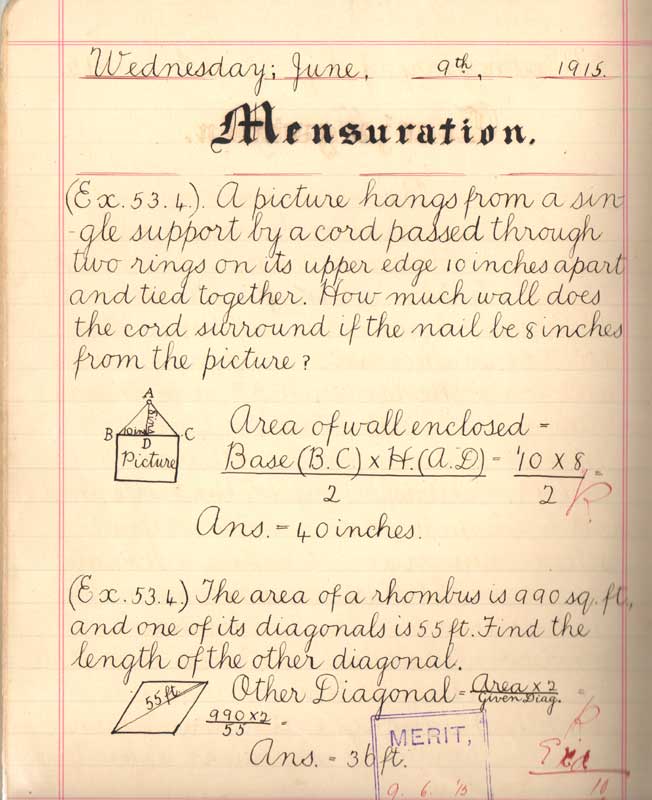 Wednesday; June, 9th, 1915.
Mensuration.
(Ex. 53. 4.). A picture hangs from a sin-
-gle support by a cord passed through
two rings on its upper edge 10 inches apart
and tied together. How much wall does
the cord surround if the nail be 8 inches
from the picture?
A
B 10 ins D C
Picture
Area of wall enclosed =
Base (B.C) x H. (A.D) = 10 X 8 =
2 2
Ans. = 40 inches.
(Ex. 53. 4.) The area of a rhombus is 990 sq. ft.,
and one of its diagonals is 55 ft. Find the
length of the other diagonal.
55 ft.
Other Diagonal = Area x 2 =
Given Diag.
990 x 2 =
55
Ans. = 36 ft.
MERIT,
9. 6. 15
10